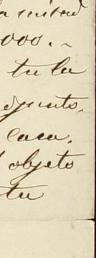 a mitad
000. "
tu la
dpunto.
casa.
objeto
tu